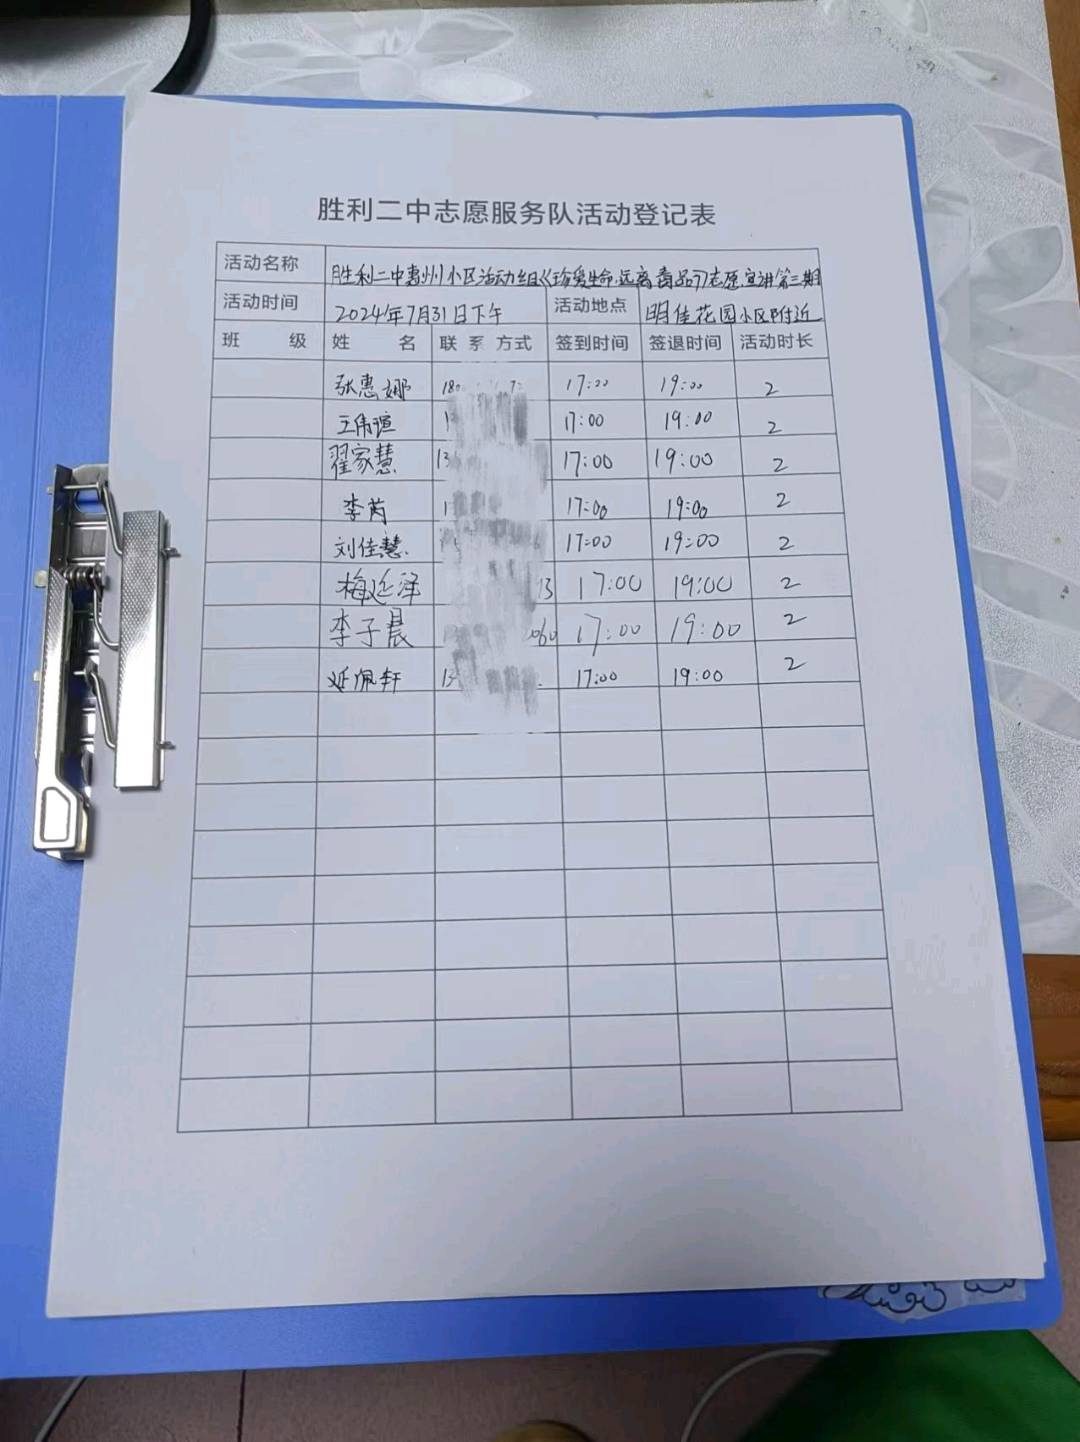 胜利二中志愿服务队活动登记表
活动名称 胜利二中惠州小区活动组《珍爱生命·远离毒品》志愿宣讲第三期
活动时间 2024年7月31日下午 活动地点 明佳花园小区附近
班 级 姓 名 联 系 方式 签到时间 签退时间 活动时长
张惠娜 17:00 19:00 2
王伟瑄 17:00 19:00 2
翟家慧 17:00 19:00 2
李芮 17:00 19:00 2
刘佳慧 17:00 19:00 2
梅延泽 17:00 19:00 2
李子晨 17:00 19:00 2
延佩轩 17:00 19:00 2